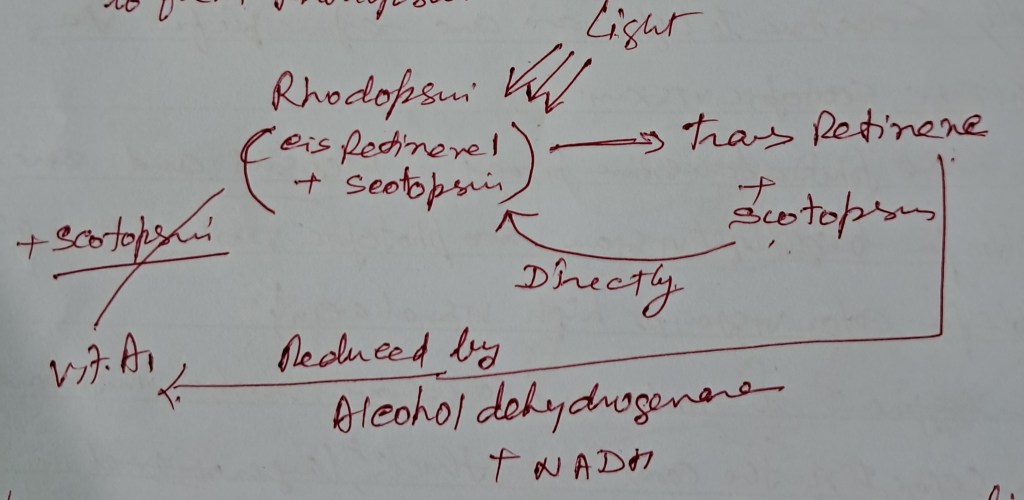 Light
Rhodopsin
(cis Retinene1 → trans Retinene
+ Scotopsin)
+ Scotopsin
+ Scotopsin
Directly
Vit. A1
Reduced by
Alcohol dehydrogenase
+ NADH